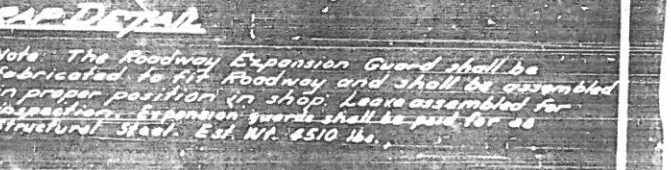 DETAIL
Note: The Roadway Expansion Guard shall be
fabricated to fit Roadway and shall be assembled
in proper position in shop. Leave assembled for
inspection. Expansion guards shall be paid for as
structural steel. Est. Wt. 4510 lbs.